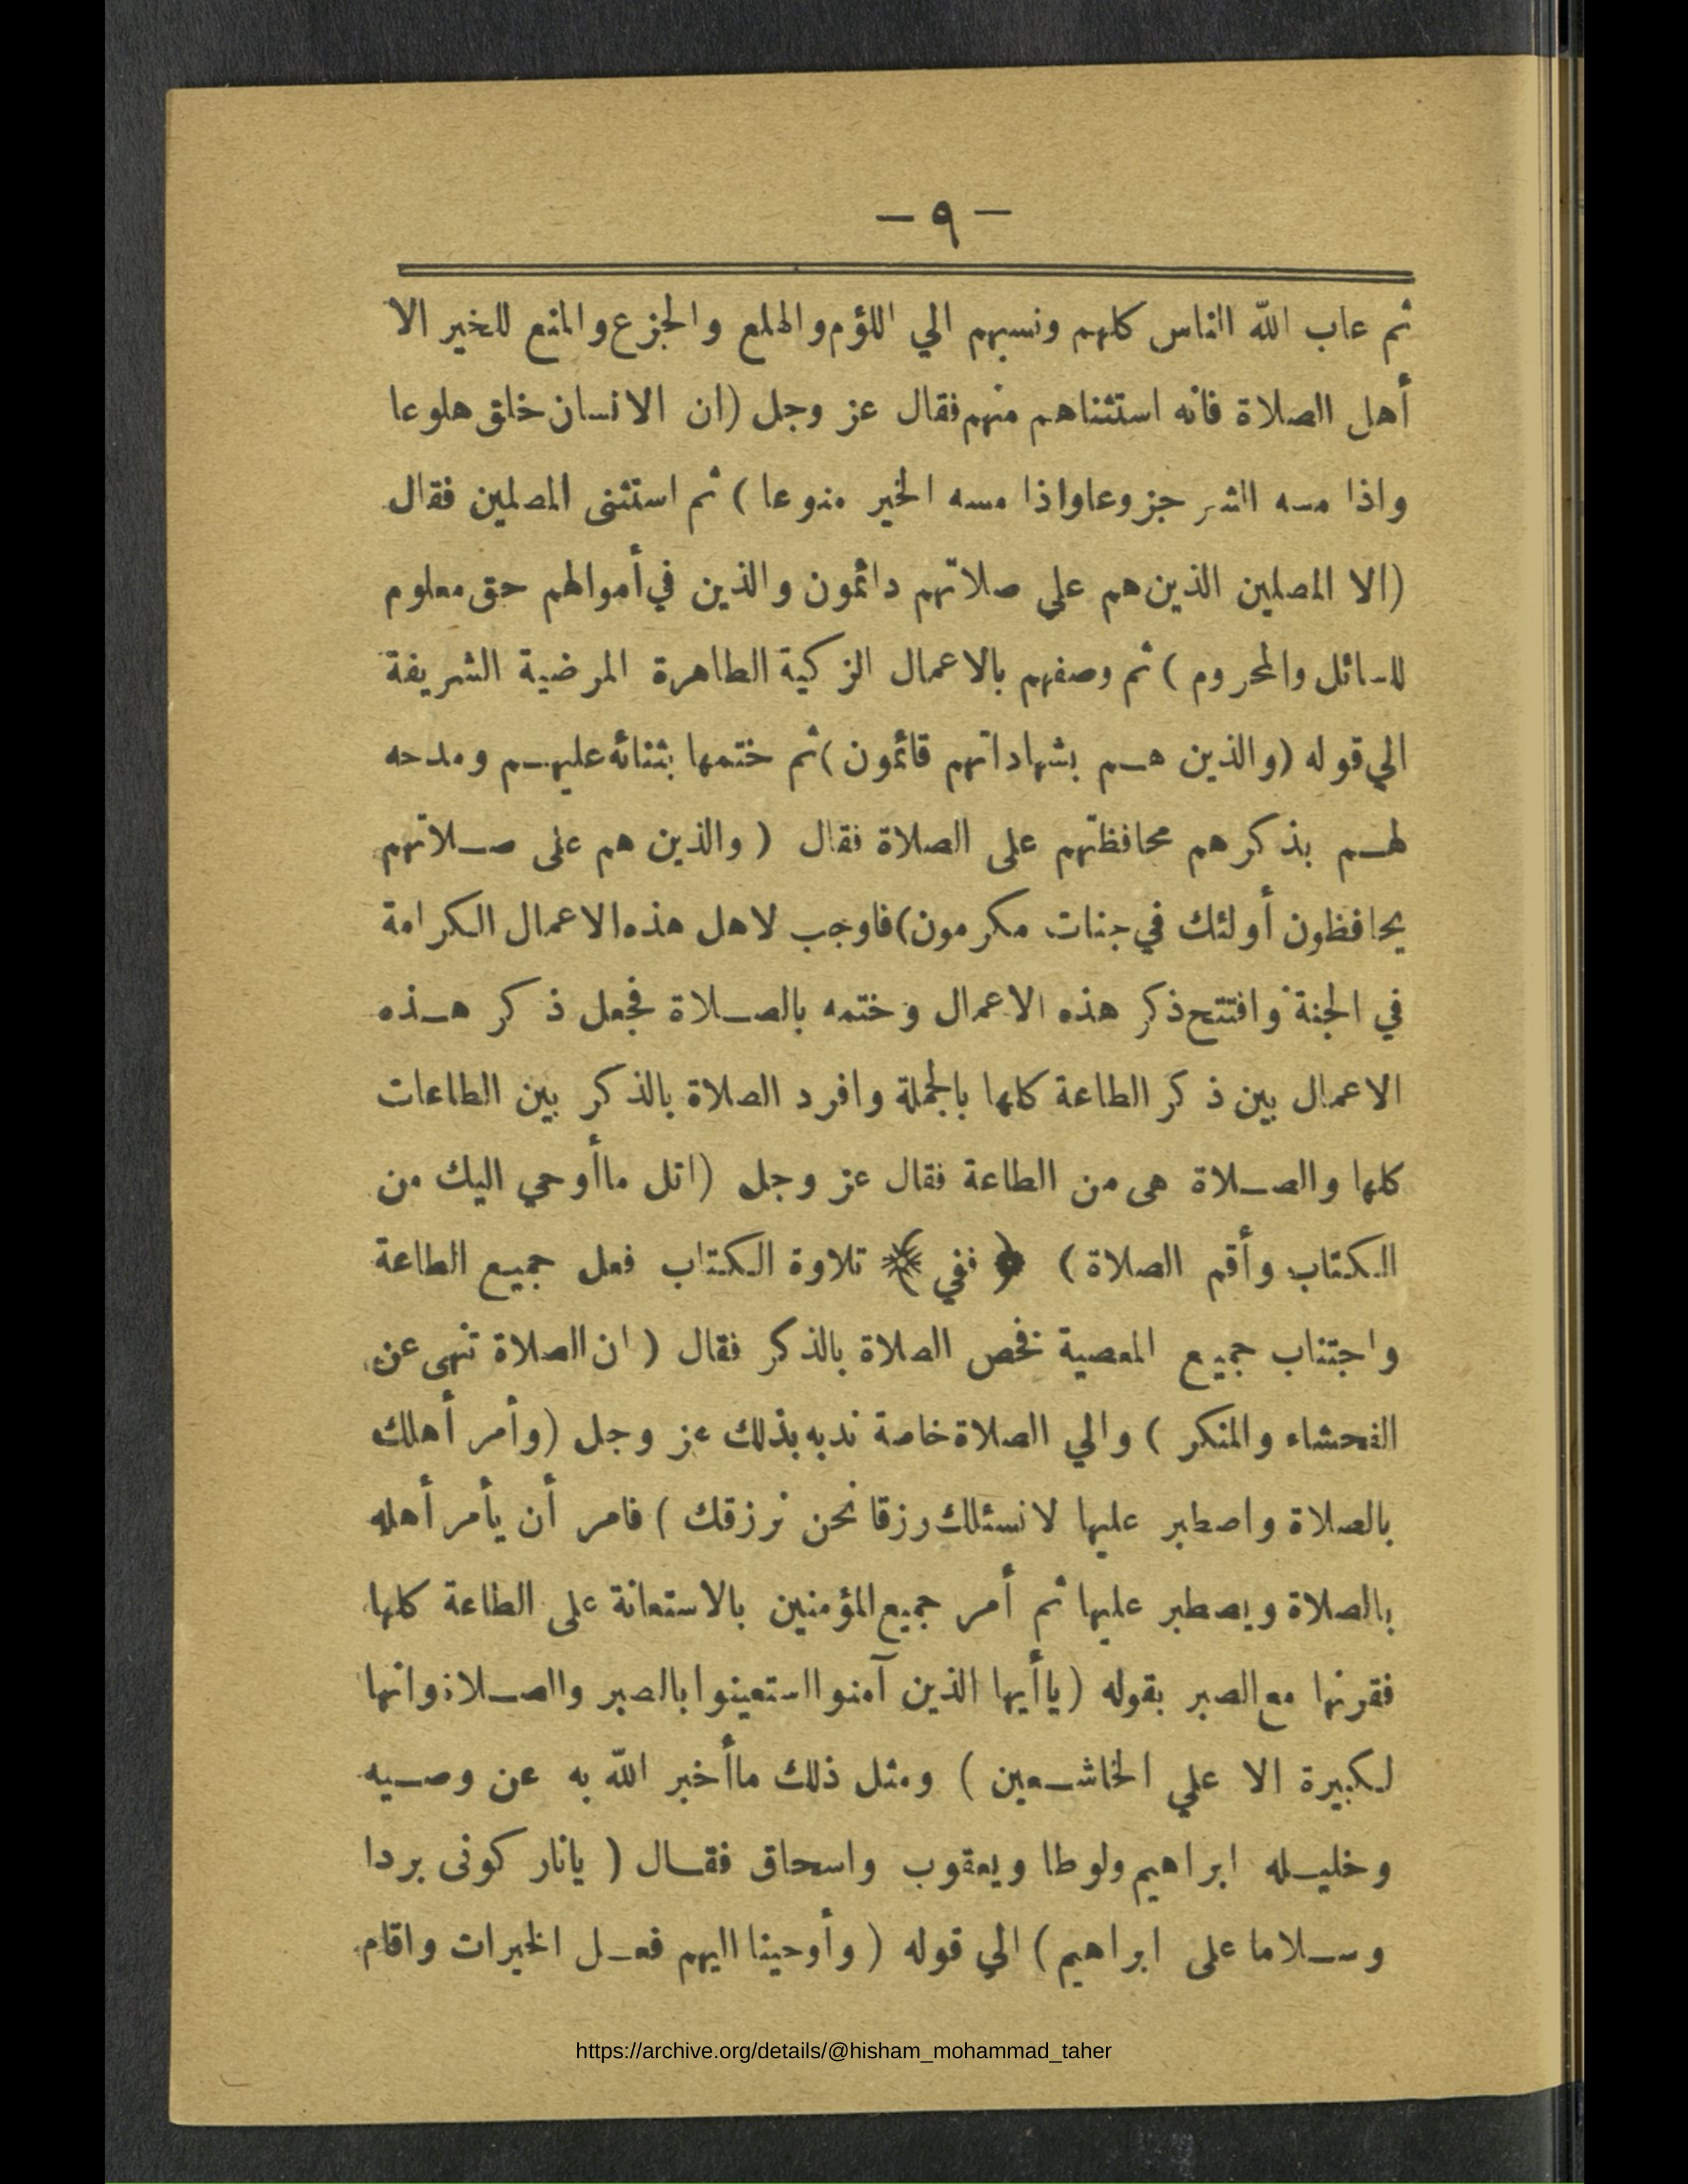 — ٩ —
ثم عاب الله الناس كلهم ونسبهم الي اللؤم والهلع والجزع والمنع للخير الا
أهل الصلاة فانه استثناهم منهم فقال عز وجل (ان الانسان خلق هلوعا
واذا مسه الشر جزوعا واذا مسه الخير منوعا) ثم استثنى المصلين فقال
(الا المصلين الذين هم علي صلاتهم دائمون والذين في أموالهم حق معلوم
للسائل والمحروم) ثم وصفهم بالاعمال الزكية الطاهرة المرضية الشريفة
الي قوله (والذين هم بشهاداتهم قائمون) ثم ختمها بثنائه عليهم ومدحه
لهم بذكرهم محافظتهم على الصلاة فقال (والذين هم على صلاتهم
يحافظون أولئك في جنات مكرمون) فاوجب لاهل هذه الاعمال الكرامة
في الجنة وافتتح ذكر هذه الاعمال وختمه بالصلاة فجعل ذكر هذه
الاعمال بين ذكر الطاعة كلها بالجملة وافرد الصلاة بالذكر بين الطاعات
كلها والصلاة هى من الطاعة فقال عز وجل (اتل ماأوحي اليك من
الكتاب وأقم الصلاة) ﴿ ففي ﴾ تلاوة الكتاب فعل جميع الطاعة
واجتناب جميع المعصية فخص الصلاة بالذكر فقال (ان الصلاة تنهى عن
الفحشاء والمنكر) والي الصلاة خاصة ندبه بذلك عز وجل (وأمر أهلك
بالصلاة واصطبر عليها لانسئلك رزقا نحن نرزقك) فامر أن يأمر أهله
بالصلاة ويصطبر عليها ثم أمر جميع المؤمنين بالاستعانة على الطاعة كلها
فقرنها مع الصبر بقوله (ياأيها الذين آمنوا استعينوا بالصبر والصلاة وانها
لكبيرة الا علي الخاشعين) ومثل ذلك ماأخبر الله به عن وصيه
وخليله ابراهيم ولوطا ويعقوب واسحاق فقال (يانار كونى بردا
وسلاما على ابراهيم) الي قوله (وأوحينا اليهم فعل الخيرات واقام
https://archive.org/details/@hisham_mohammad_taher